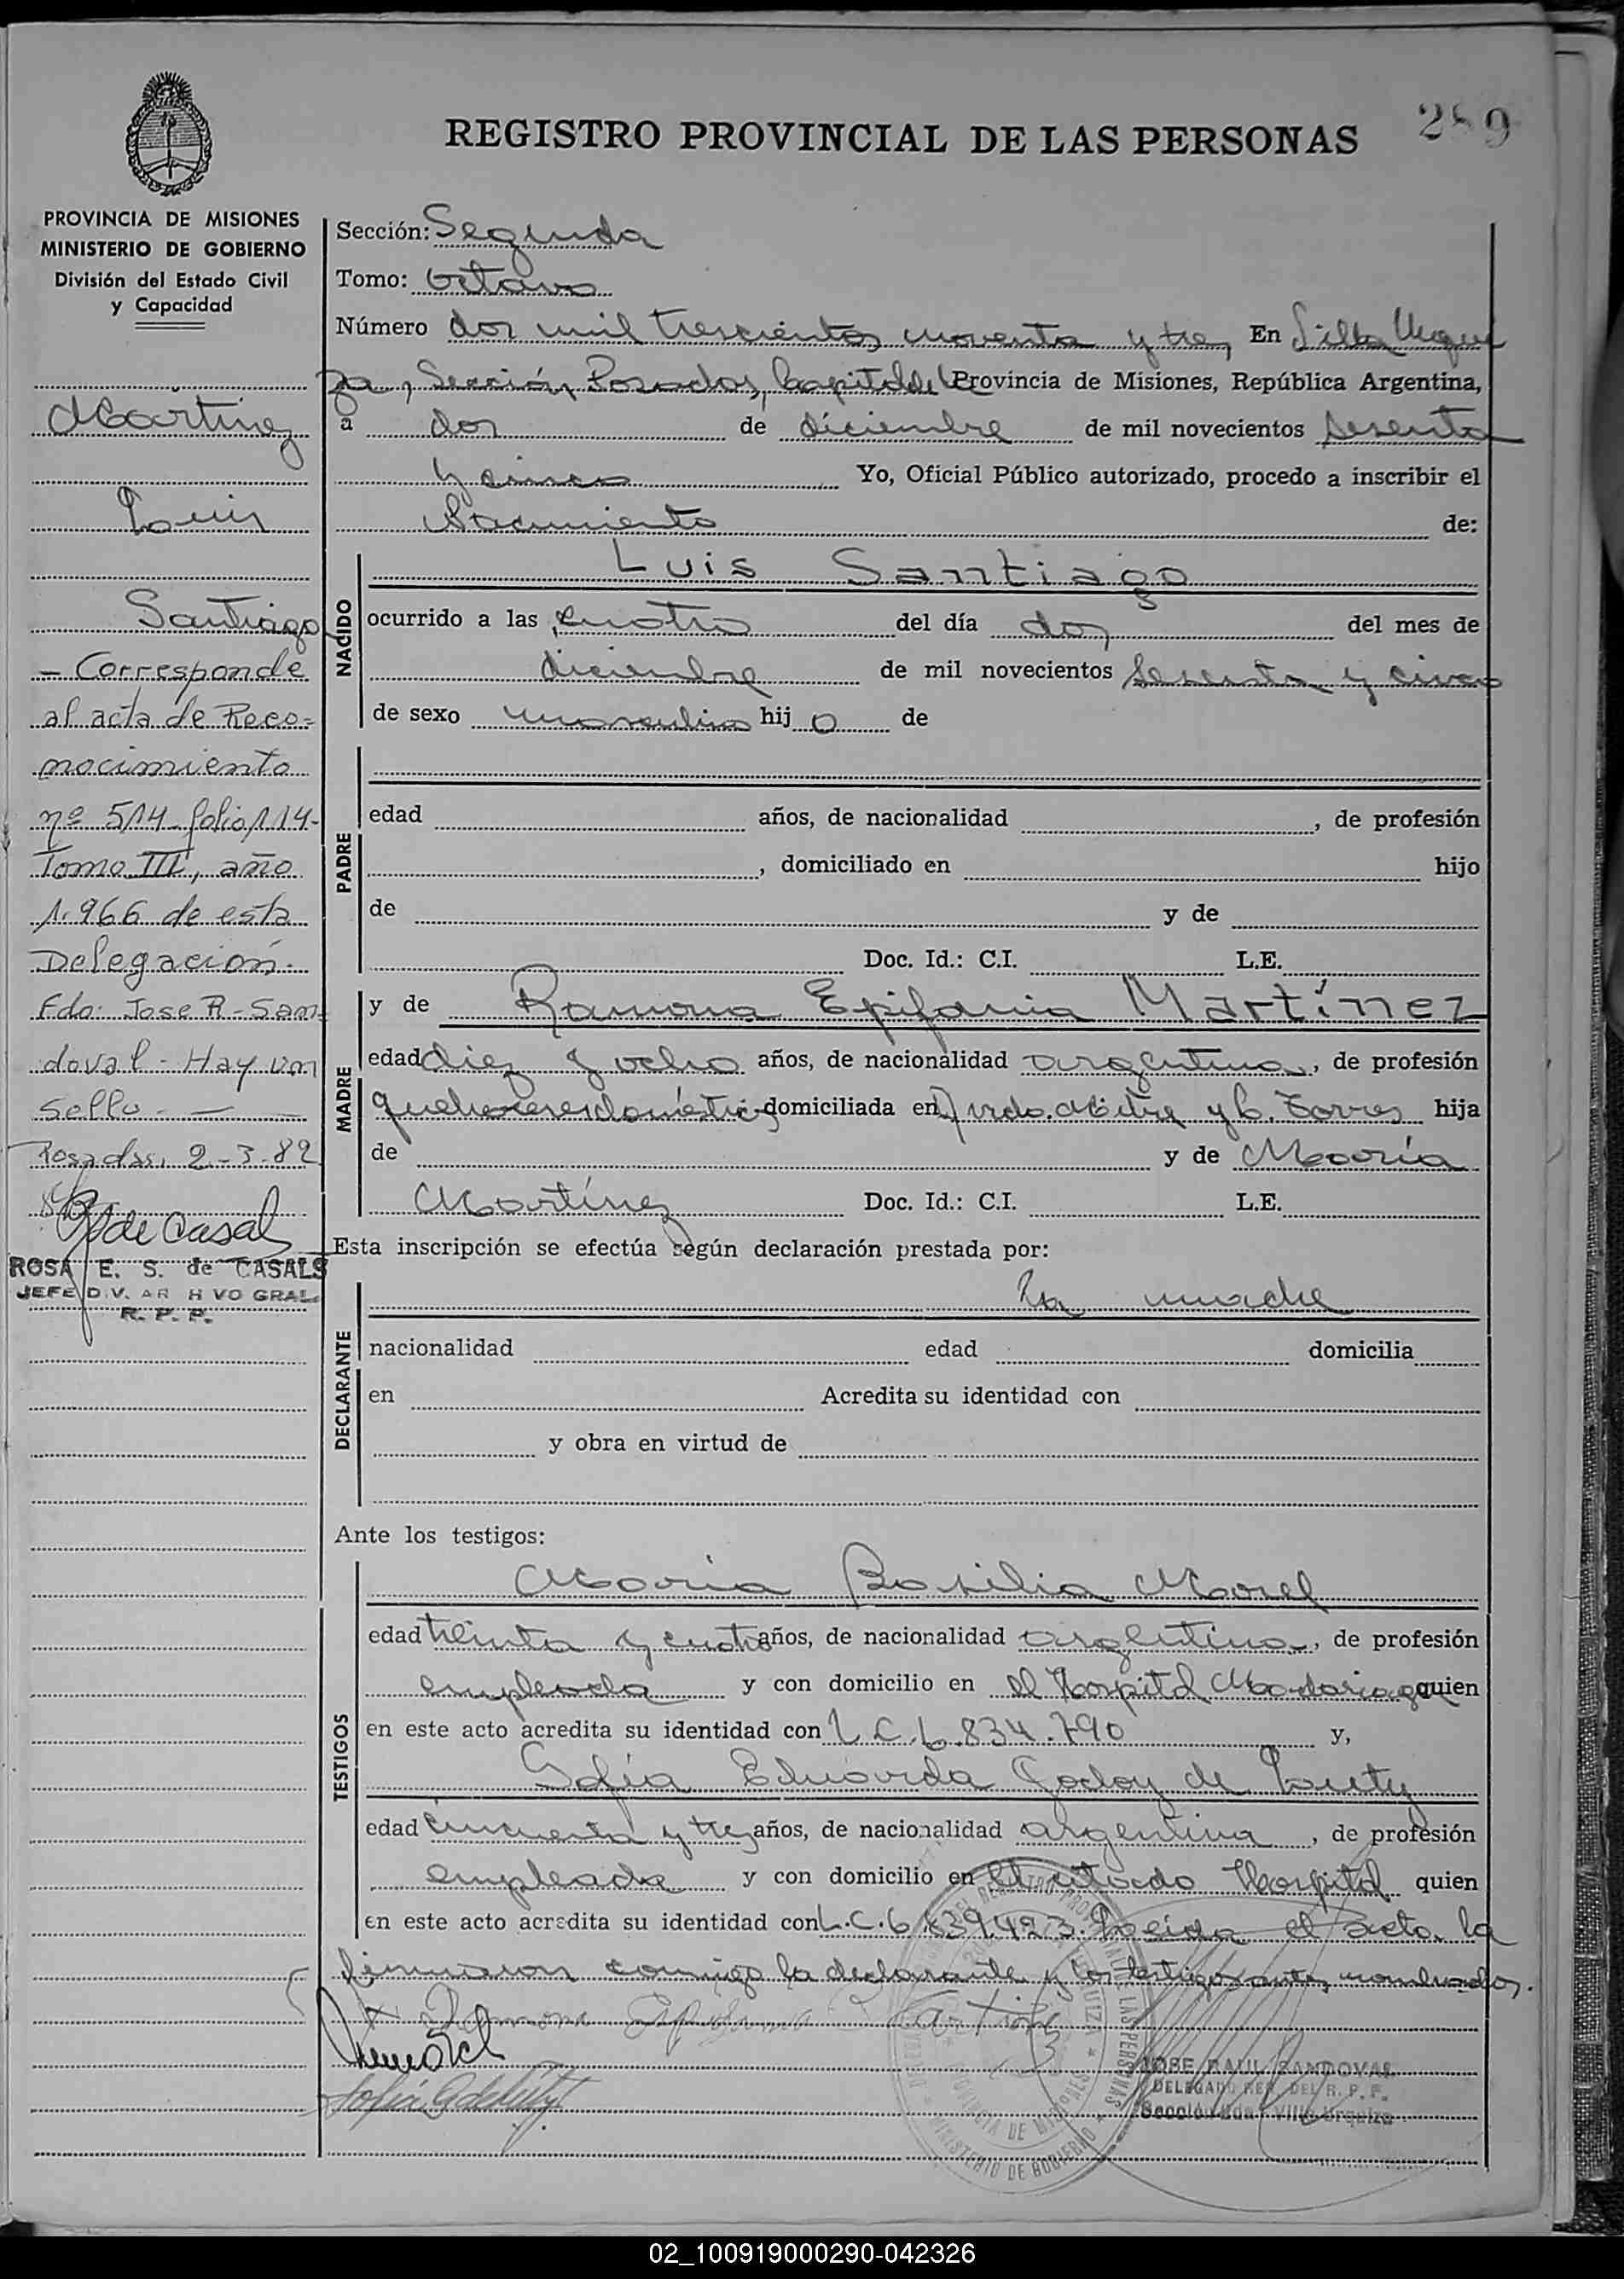 289
REGISTRO PROVINCIAL DE LAS PERSONAS
PROVINCIA DE MISIONES
MINISTERIO DE GOBIERNO
División del Estado Civil
y Capacidad
Martinez
Luis
Santiago
- Corresponde
al acta de Reco-
nocimiento
nº 514 - folio 114-
Tomo III, año
1.966 de esta
Delegación.
Fdo: Jose R - San-
doval - Hay un
sello - —
Posadas, 2-3-82
de Casals
ROSA E. S. de CASALS
JEFE D V. AR H VO GRAL.
R. P. P.
Sección: Segunda
Tomo: Octavo
Número dos mil trescientos noventa y tres En Villa Urqui
za, Sección Posadas, Capital de Provincia de Misiones, República Argentina,
a dos de diciembre de mil novecientos sesenta
y cinco Yo, Oficial Público autorizado, procedo a inscribir el
Nacimiento de:
NACIDO
Luis Santiago
ocurrido a las cuatro del día dos del mes de
diciembre de mil novecientos sesenta y cinco
de sexo masculino hijo de
PADRE
edad años, de nacionalidad , de profesión
, domiciliado en hijo
de y de
Doc. Id.: C.I. L.E.
MADRE
y de Ramona Epifania Martínez
edad diez y ocho años, de nacionalidad argentina, de profesión
quehaceres domésticos domiciliada en Avda. Mitre y C. Torres hija
de y de María
Martínez Doc. Id.: C.I. L.E.
Esta inscripción se efectúa según declaración prestada por:
DECLARANTE
La madre
nacionalidad edad domicilia
en Acredita su identidad con
y obra en virtud de
Ante los testigos:
TESTIGOS
María Basilia Morel
edad treinta y cuatro años, de nacionalidad argentina, de profesión
empleada y con domicilio en el Hospital Madariaga quien
en este acto acredita su identidad con L.C.6.834.790 y,
Sofia Eduarda Godoy de
edad cincuenta y tres años, de nacionalidad argentina, de profesión
empleada y con domicilio en El citado Hospital quien
en este acto acredita su identidad con L.C.6.839.423. Leida el acta la
firmaron conmigo la declarante y los testigos antes nombrados.
Ramona Epifania Martinez
JOSE RAUL SANDOVAL
DELEGADO REG. DEL R. P. P.
Sección 2da. Villa Urquiza
02_100919000290-042326